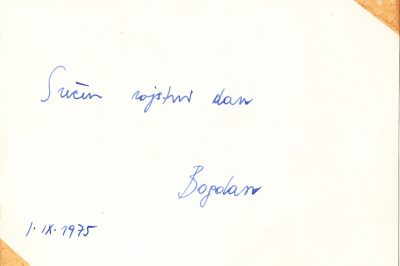 Srečen rojstni dan
Bogdan
1. IX. 1975